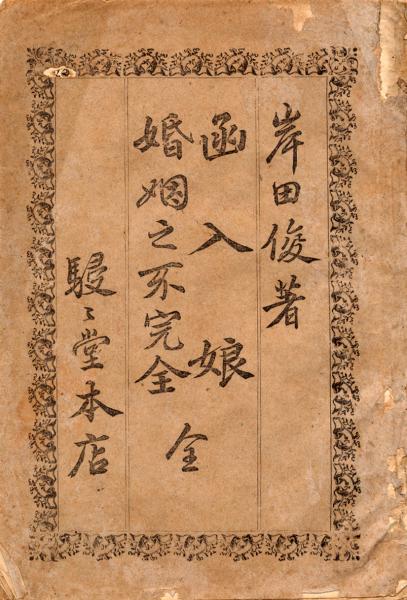 岸田俊著
函入娘
婚姻之不完全
全
駸々堂本店